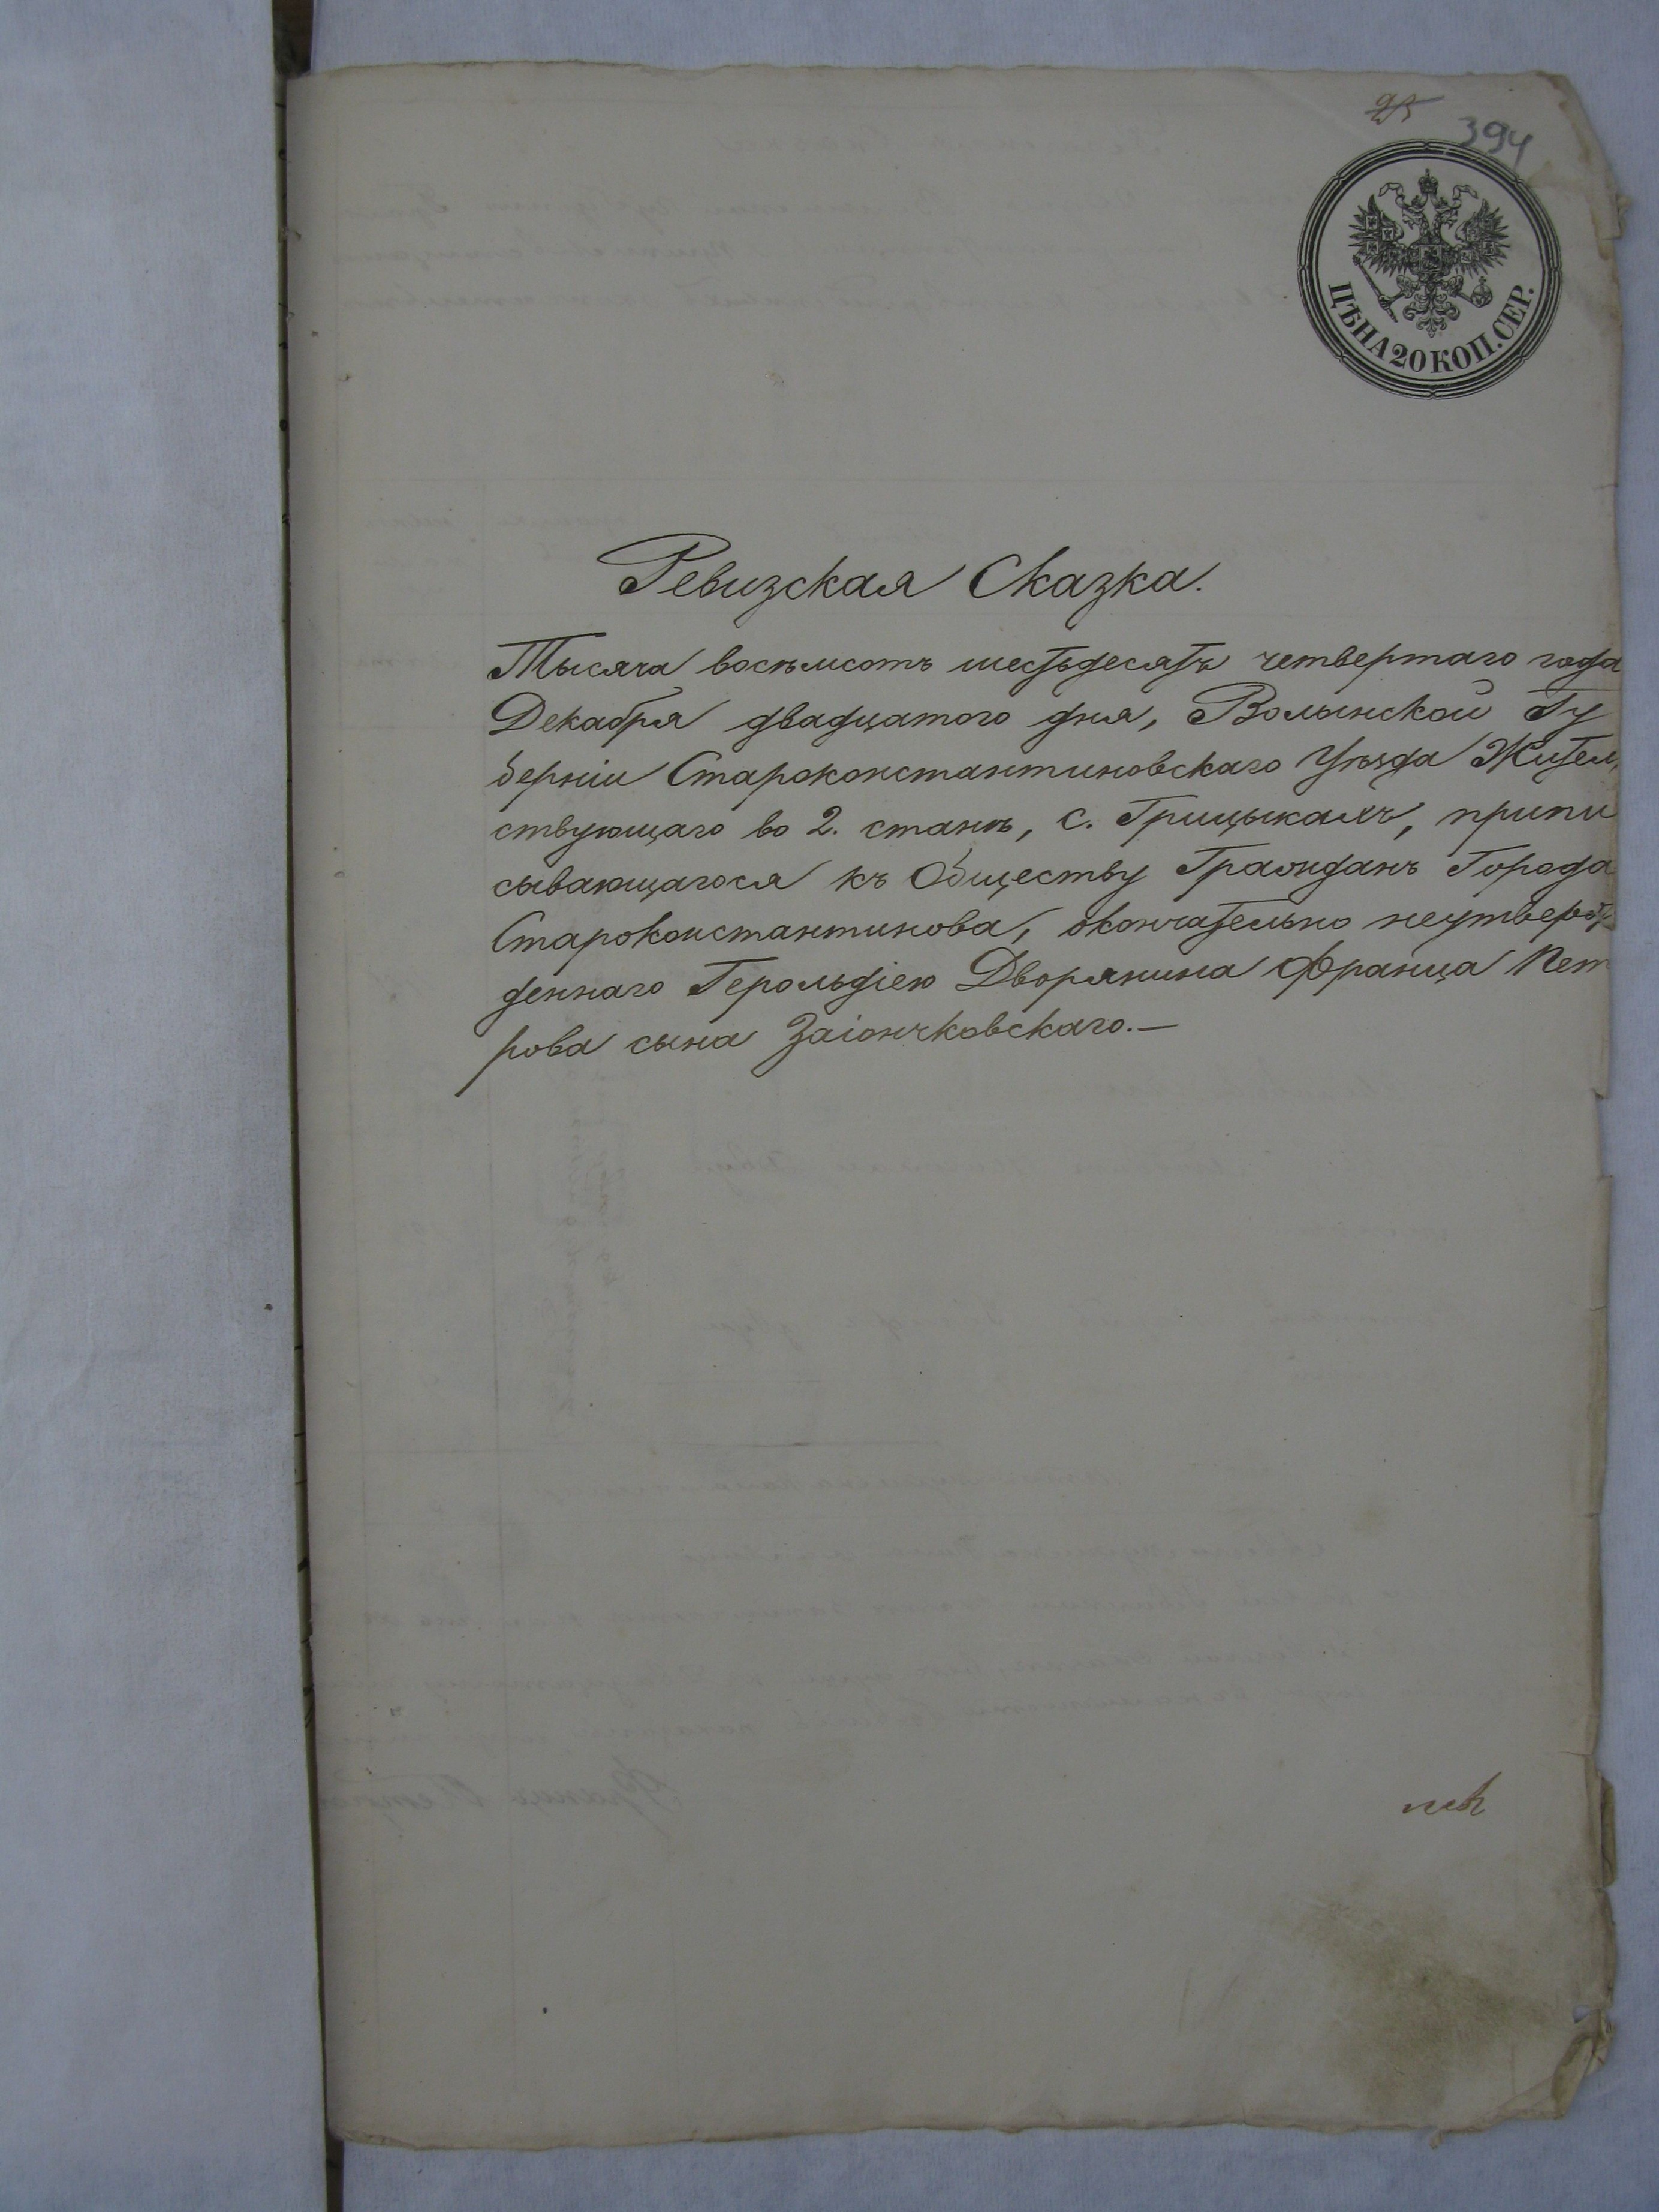 394
ЦѢНА 20 КОП. СЕР.
Ревизская Сказка.
Тысяча восемьсотъ шестьдесятъ четвертаго года
Декабря двадцатого дня, Волынской Гу
берніи Староконстантиновскаго Уѣзда Жител,
ствующаго во 2. станѣ, с. Грицыкахъ, припи
сывающагося къ Обществу Гражданъ Города
Староконстантинова, окончательно неутверж
деннаго Герольдіею Дворянина Франца Пет
рова сына Заіончковскаго.—